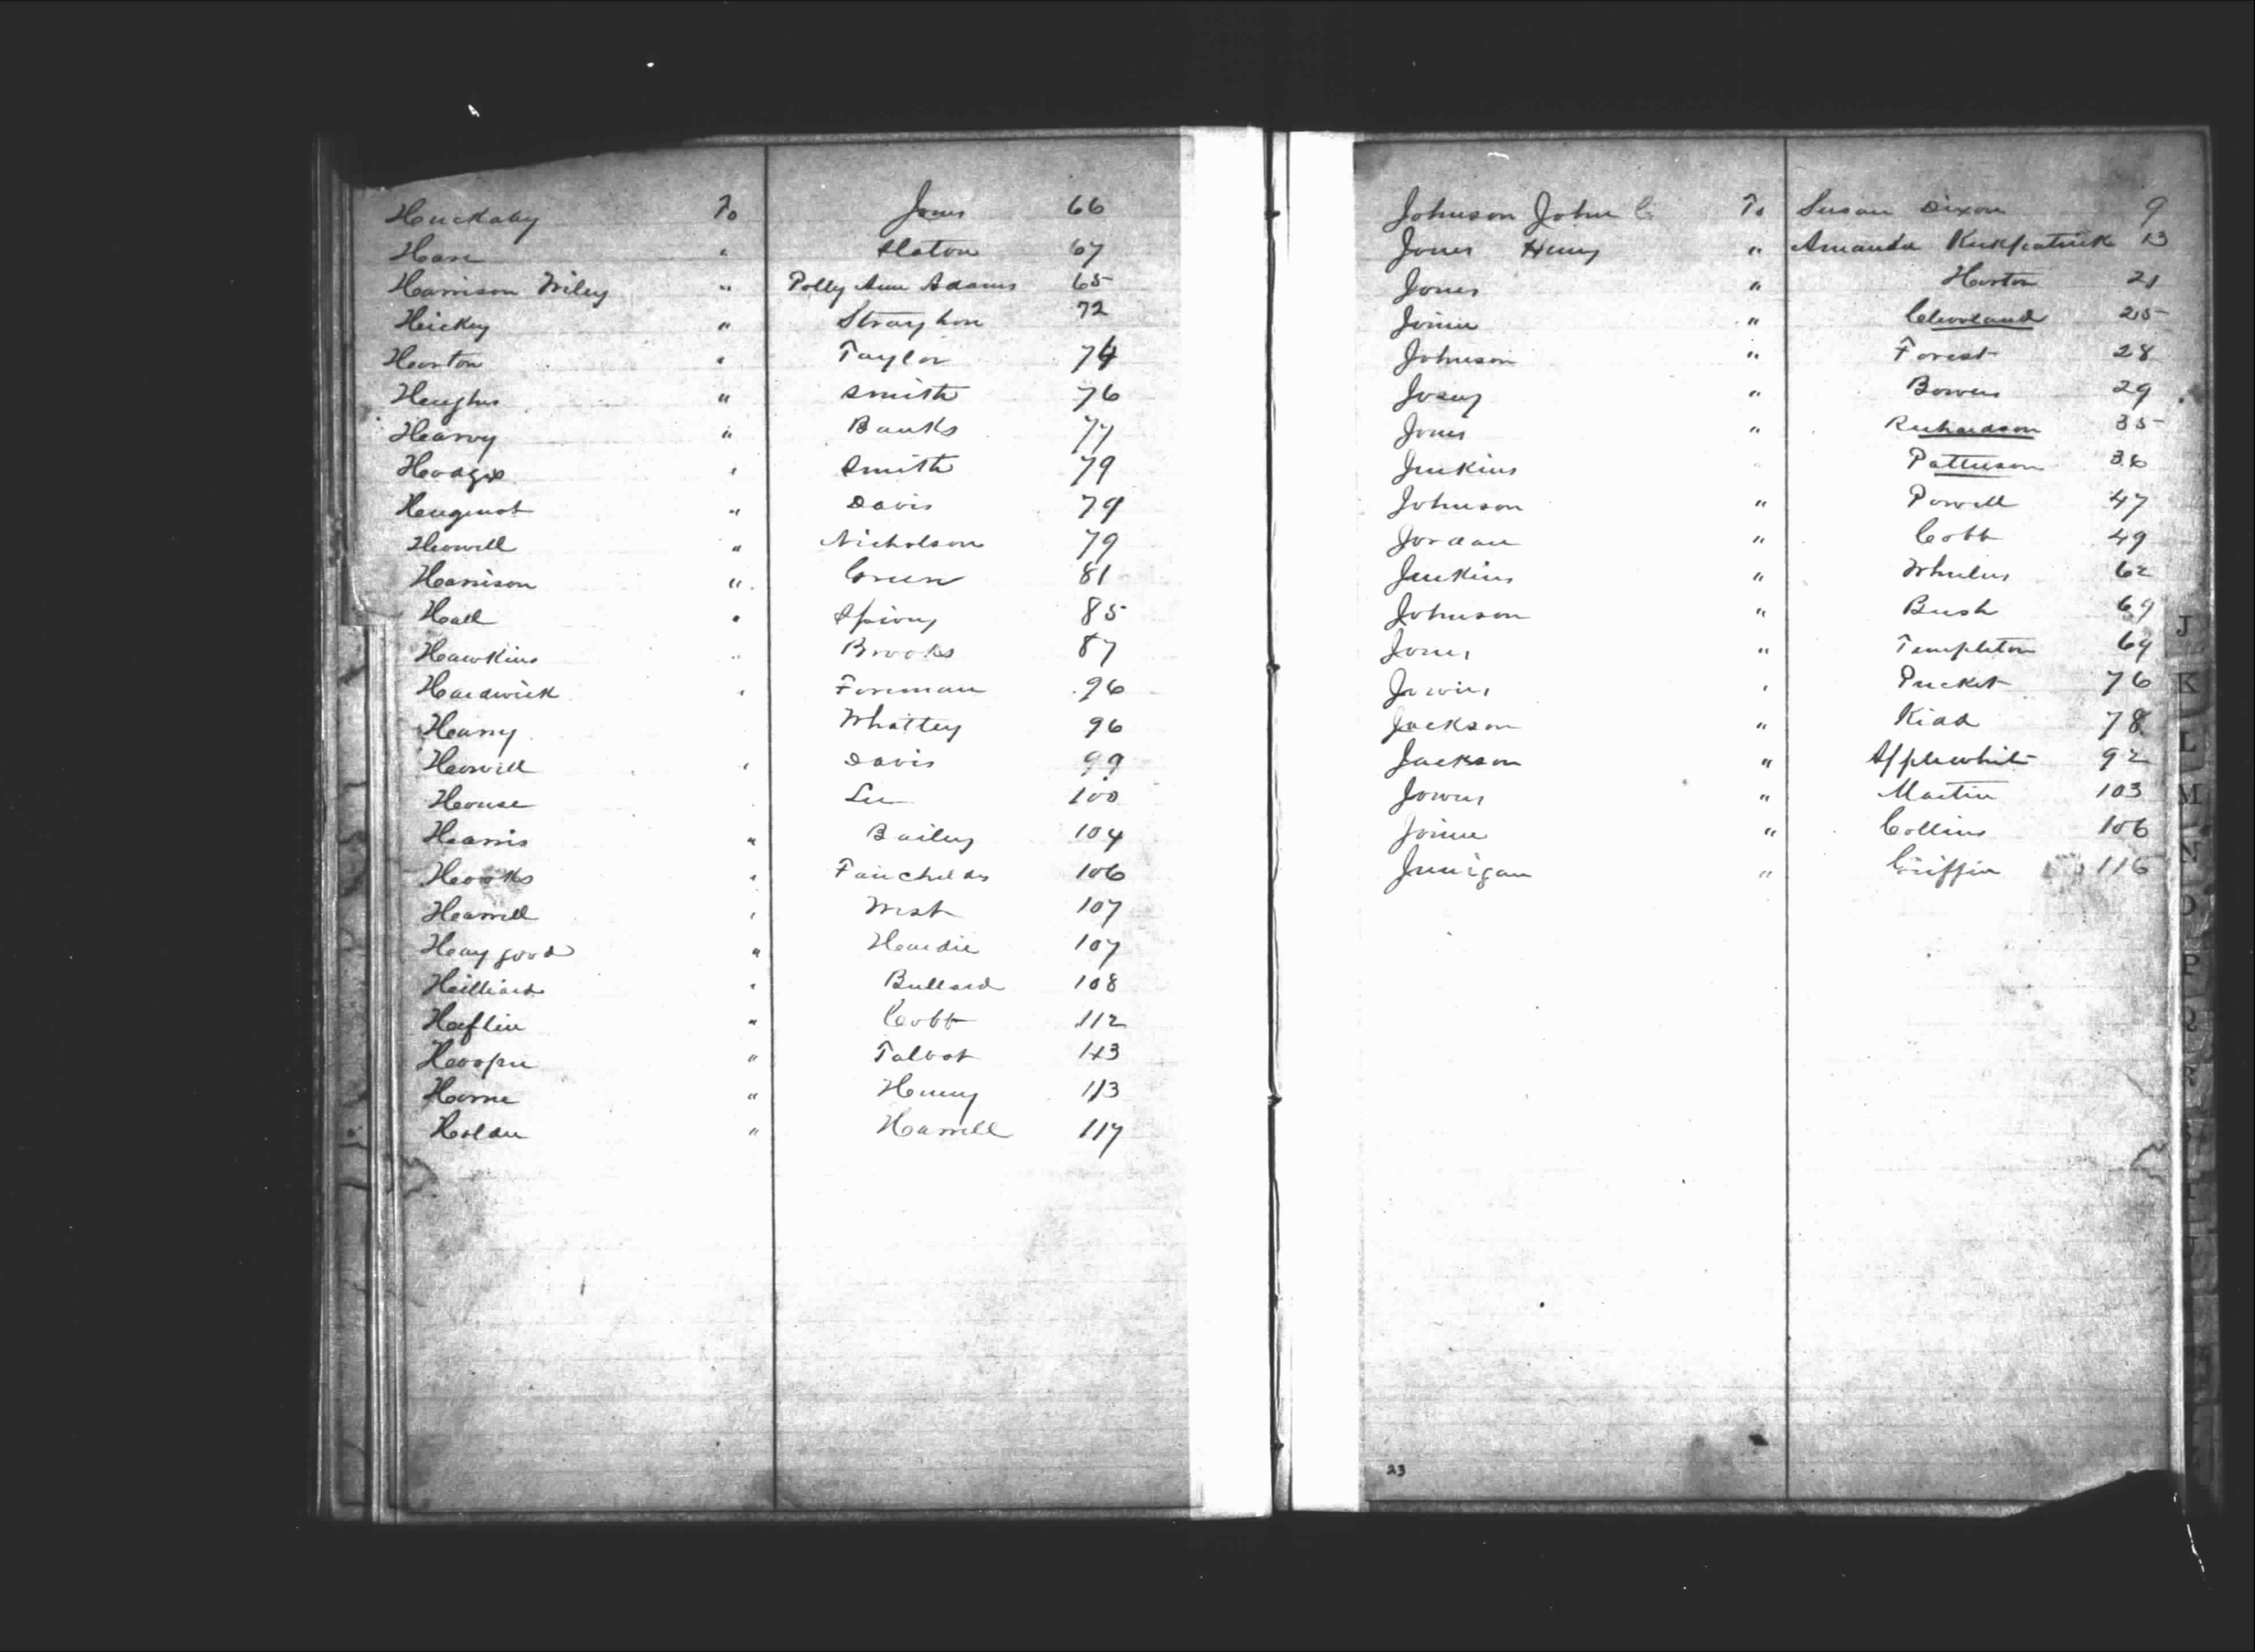 Huckaby To Jones 66
Hare " Slaton 67
Harrison Wiley " Polly Ann Adams 65
Hickey " Strayhon 72
Horton " Taylor 74
Hughes " Smith 76
Harvy " Banks 77
Hodges " Smith 79
Hugenot " Davis 79
Howell " Nicholson 79
Harrison " Green 81
Hall " Spivey 85
Hawkins " Brooks 87
Hardwick " Foreman 96
Harry Whatley 96
Howell " Davis 99
House Lee 100
Harris " Bailey 104
Hooks " Fairchilds 106
Harrell " West 107
Haygood " Hardie 107
Hilliard " Bullard 108
Heflin " Cobb 112
Hooper " Talbot 113
Horne " Henry 113
Holder " Harrell 117
Johnson John C To Susan Dixon 9
Jones Henry " Amanda Kirkpatrick 13
Jones " Horton 21
Joiner " Cleveland 25
Johnson " Forest 28
Josey " Bowers 29
Jones " Richardson 35
Jenkins " Patterson 36
Johnson " Powell 47
Jordan " Cobb 49
Jenkins " Wheeler 62
Johnson " Bush 69
Jones " Templeton 69
" Pucket 76
Jackson " Kidd 78
Jackson " Applewhite 92
Jowers " Martin 103
Joiner " Collins 106
Jernigan " Griffin 116
23
J
K
L
M
N
O
P
Q
R